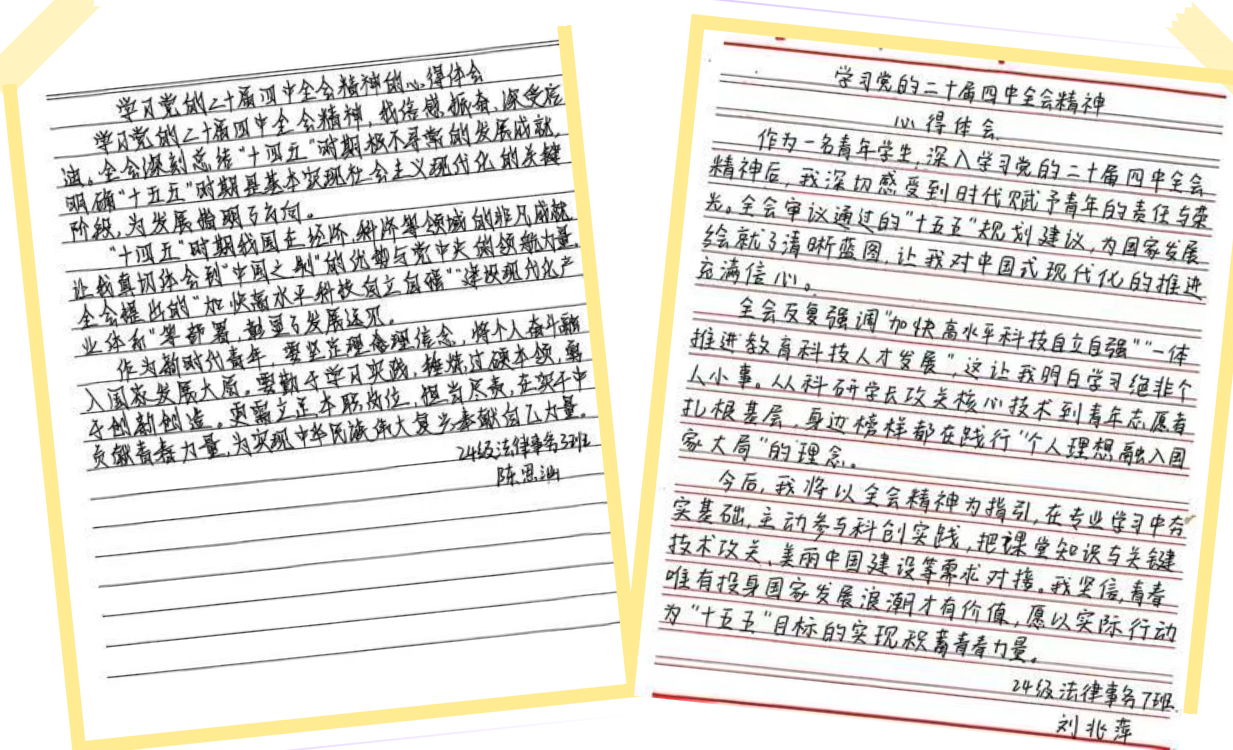 学习党的二十届四中全会精神的心得体会
学习党的二十届四中全会精神，我倍感振奋、深受启
迪。全会深刻总结“十四五”时期极不寻常的发展成就，
明确“十五五”时期是基本实现社会主义现代化的关键
阶段，为发展指明了方向。
“十四五”时期我国在经济、科技等领域的非凡成就
让我真切体会到“中国之制”的优势与党中央的领航力量。
全会提出的“加快高水平科技自立自强”“建设现代化产
业体系”等部署，彰显了发展远见。
作为新时代青年，要坚定理想信念，将个人奋斗融
入国家发展大局。要勤于学习实践，锤炼过硬本领，勇
于创新创造。更需立足本职岗位，担当尽责，在实干中
贡献青春力量，为实现中华民族伟大复兴奉献自己力量。
24级法律事务3班
陈思汕
学习党的二十届四中全会精神
心得体会
作为一名青年学生，深入学习党的二十届四中全会
精神后，我深切感受到时代赋予青年的责任与荣
光。全会审议通过的“十五五”规划建议，为国家发展
绘就了清晰蓝图，让我对中国式现代化的推进
充满信心。
全会反复强调“加快高水平科技自立自强”“一体
推进教育科技人才发展”，这让我明白学习绝非个
人小事。从科研学长攻关核心技术到青年志愿者
扎根基层，身边榜样都在践行“个人理想融入国
家大局”的理念。
今后，我将以全会精神为指引，在专业学习中夯
实基础，主动参与科创实践，把课堂知识与关键
技术攻关、美丽中国建设等需求对接。我坚信，青春
唯有投身国家发展浪潮才有价值，愿以实际行动
为“十五五”目标的实现积蓄青春力量。
24级法律事务7班
刘兆萍